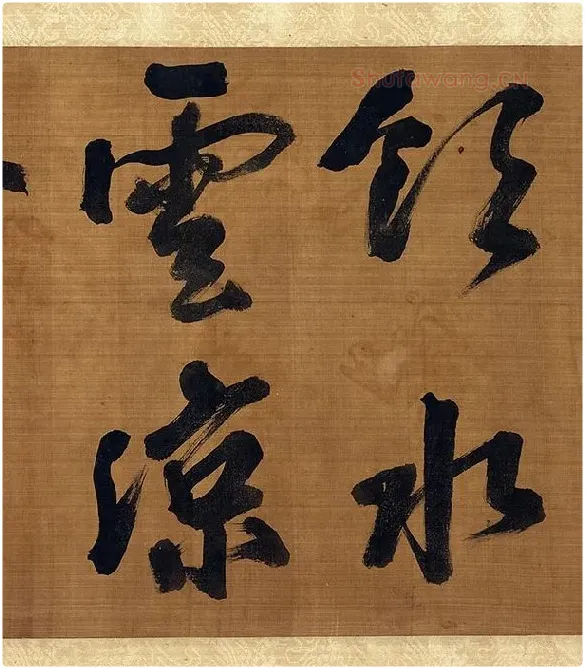 領水
雲涼
Shufawang.CN